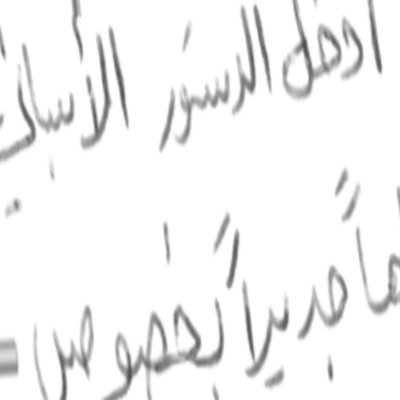 أدخل الدستور الأسباني
جديداً بخصوص